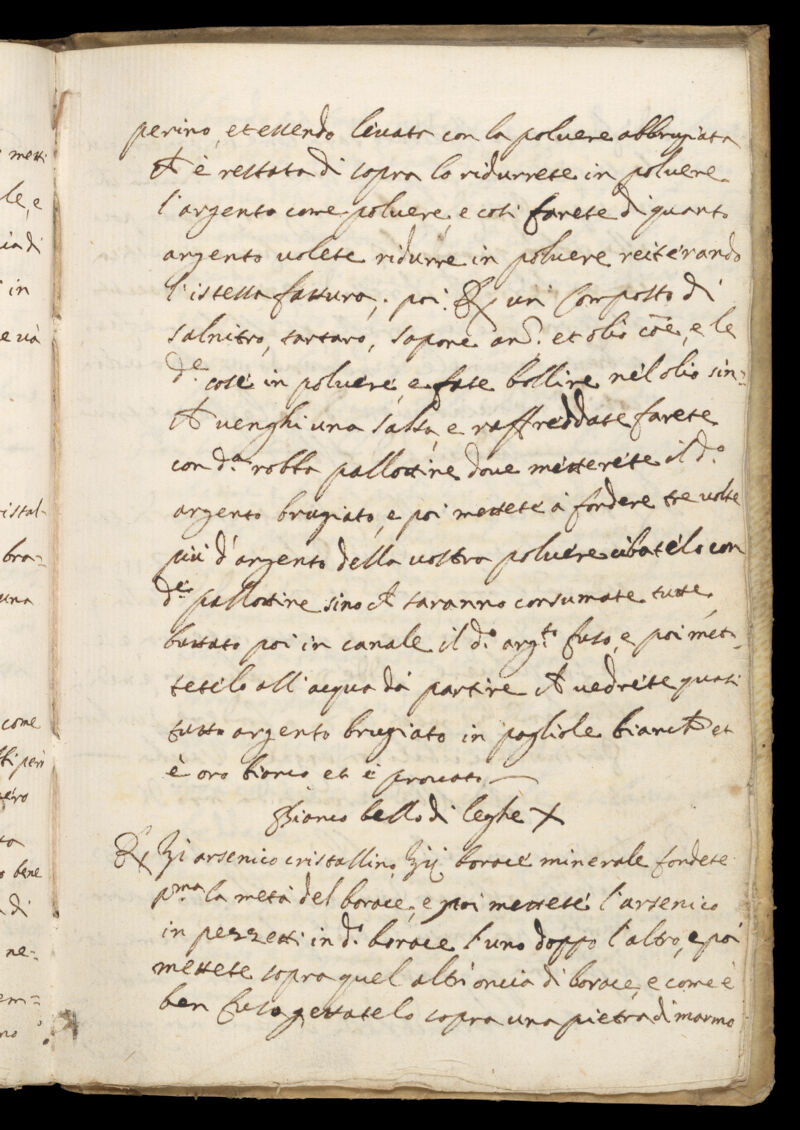 perino, et essendo levata con la polvere abbrugiata
è restata di sopra lo ridurrete in polvere
l'argento come polvere, e così farete di quanto
argento volete ridurre in polvere reiterando
l'istessa fattura, poi ℞ un composto di
salnitro, tartaro, sapone an. et olio cõe, e le
d.e cose in polvere, e fate bollire nel olio sin=
venghi una salsa, e raffreddate farete
con d.a robba pallottine dove metterete il d.o
argento brugiato, e poi mettete à fondere tre volte
più d'argento della vostra polvere cibatelo con
d.e pallottine sino saranno consumate tutte,
buttato poi in canale il d.o arg.to fuso, e poi met=
tetelo all'acqua da partire vedrete quasi
tutto argento brugiato in pagliole bianche et
è oro bianco et è provato
Bianco bello di leghe X
℞ ℥i arsenico cristallino, ℥ij borace minerale fondete
p.ma la metà del borace, e poi mettete l'arsenico
in pezzetti in d.o borace l'uno doppo l'altro, e poi
mettete sopra quel altr'oncia di borace, e come è
ben fuso gettatelo sopra una pietra di marmo
metti
le, e
ia di
in
e và
ristal-
bra=
una
come
però
ero
to
o bene
di
ne=
em=
no